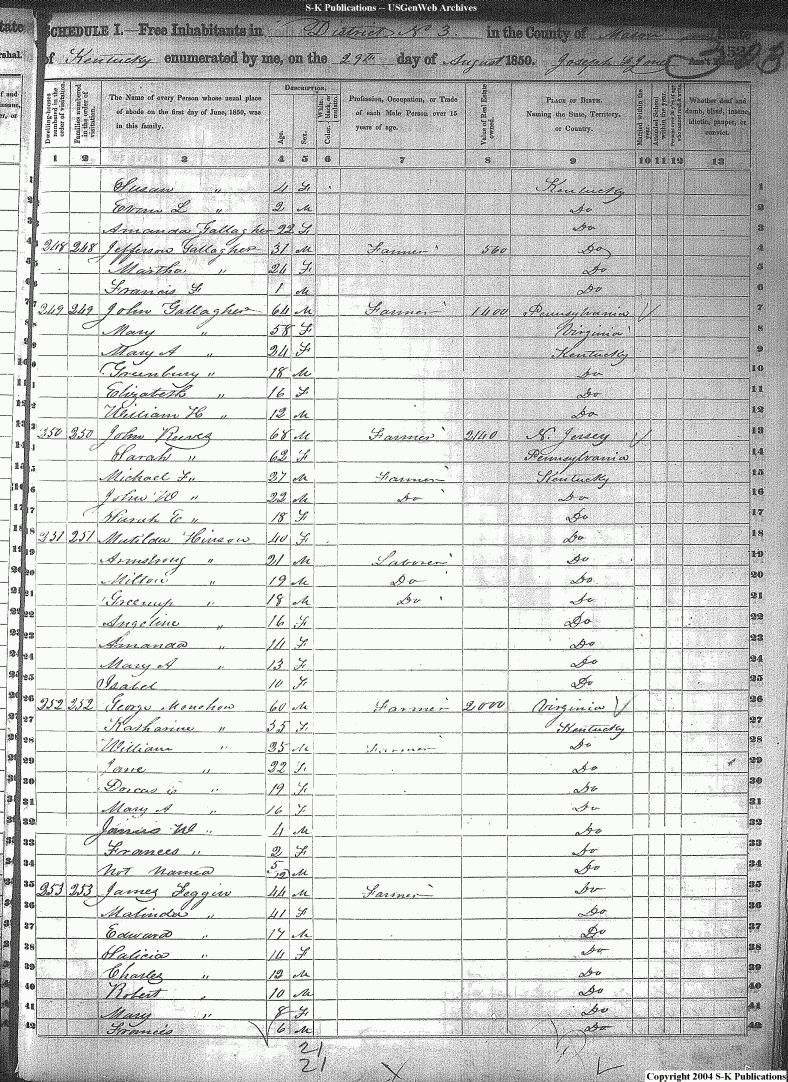 S-K Publications -- USGenWeb Archives
SCHEDULE I.—Free Inhabitants in District No 3. in the County of Mason State
of Kentucky enumerated by me, on the 29th day of August 1850. Joseph
Dwelling-houses numbered in the order of visitation. Families numbered in the order of visitation. The Name of every Person whose usual place of abode on the first day of June, 1850, was in this family. Description. Age. Sex. Color, White, black, or mulatto. Profession, Occupation, or Trade of each Male Person over 15 years of age. Value of Real Estate owned. Place of Birth. Naming the State, Territory, or Country. Married within the year. Attended School within the year. Whether deaf and dumb, blind, insane, idiotic, pauper, or convict.
1 2 3 4 5 6 7 8 9 10 11 12 13
1 Susan " 4 F Kentucky 1
2 Evan L " 2 M Do 2
3 Amanda Gallagher 22 F Do 3
4 248 248 Jefferson Gallagher 31 M Farmer 560 Do 4
5 Martha " 24 F Do 5
6 Francis F 1 M Do 6
7 249 249 John Gallagher 64 M Farmer 1400 Pennsylvania 7
8 Mary " 58 F Virginia 8
9 Mary A " 24 F Kentucky 9
10 Greenbury " 18 M Do 10
11 Elizabeth " 16 F Do 11
12 William H " 12 M Do 12
13 250 250 John Reeves 68 M Farmer 2140 N. Jersey 13
14 Sarah " 62 F Pennsylvania 14
15 Michael F " 27 M Farmer Kentucky 15
16 John W " 22 M Do Do 16
17 Sarah E " 18 F Do 17
18 251 251 Matilda Hinson 40 F Do 18
19 Armstrong " 21 M Laborer Do 19
20 Milton " 19 M Do Do 20
21 Greenup " 18 M Do Do 21
22 Angeline " 16 F Do 22
23 Amanda " 14 F Do 23
24 Mary A " 13 F Do 24
25 Isabel 10 F Do 25
26 252 252 George Monohon 60 M Farmer 2000 Virginia 26
27 Katharine " 55 F Kentucky 27
28 William " 25 M Farmer Do 28
29 Jane " 22 F Do 29
30 Dorcas " 19 F Do 30
31 Mary A " 16 F Do 31
32 James W " 4 M Do 32
33 Frances " 2 F Do 33
34 Not Named 5/12 M Do 34
35 253 253 James Feggin 44 M Farmer Do 35
36 Malinda " 41 F Do 36
37 Edward " 17 M Do 37
38 14 F Do 38
39 Charles " 12 M Do 39
40 Robert " 10 M Do 40
41 Mary " 8 F Do 41
42 Francis 6 M Do 42
21
21
Copyright 2004 S-K Publications